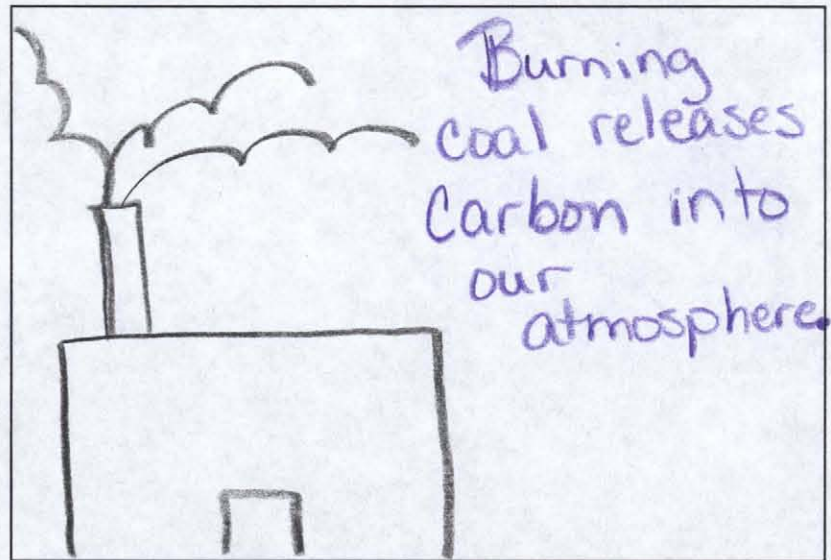 Burning
coal releases
Carbon into
our
atmosphere.